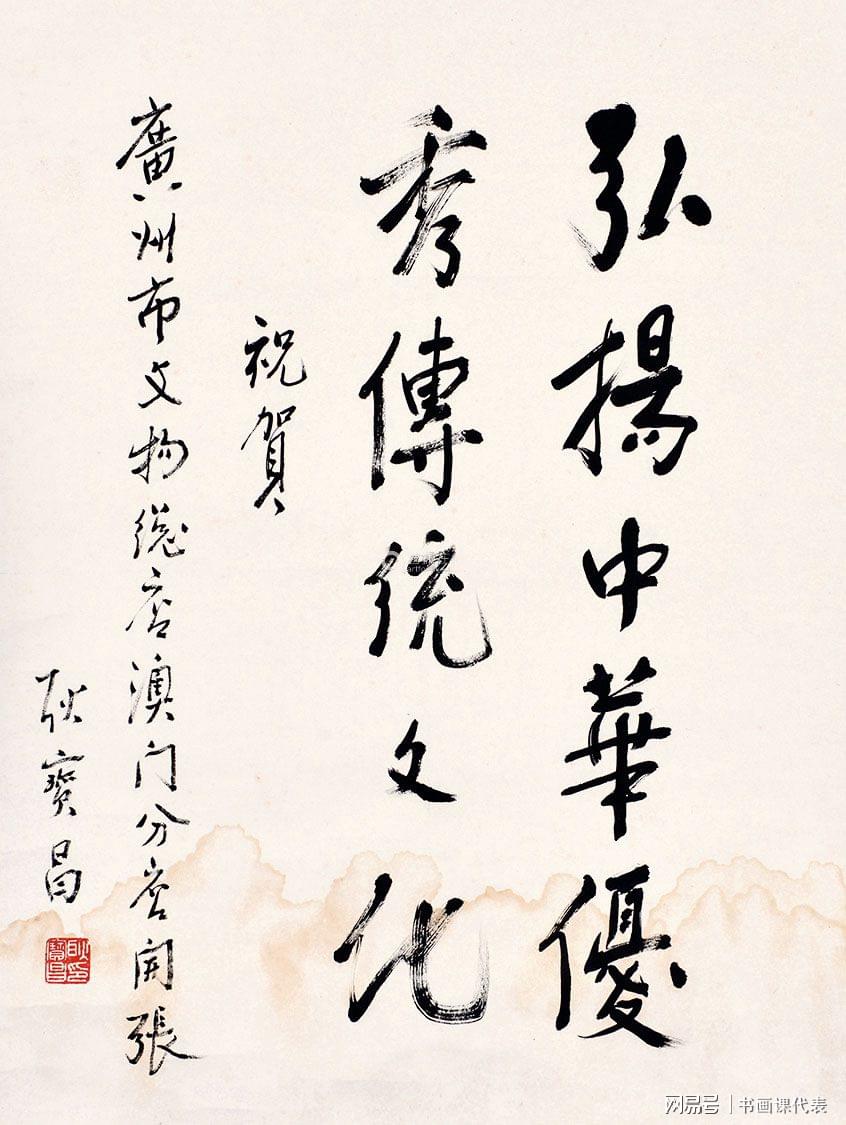 弘揚中華優
秀傳統文化
祝賀
廣州市文物總店澳门分店開張
耿寶昌
耿寶昌印
网易号 | 书画课代表